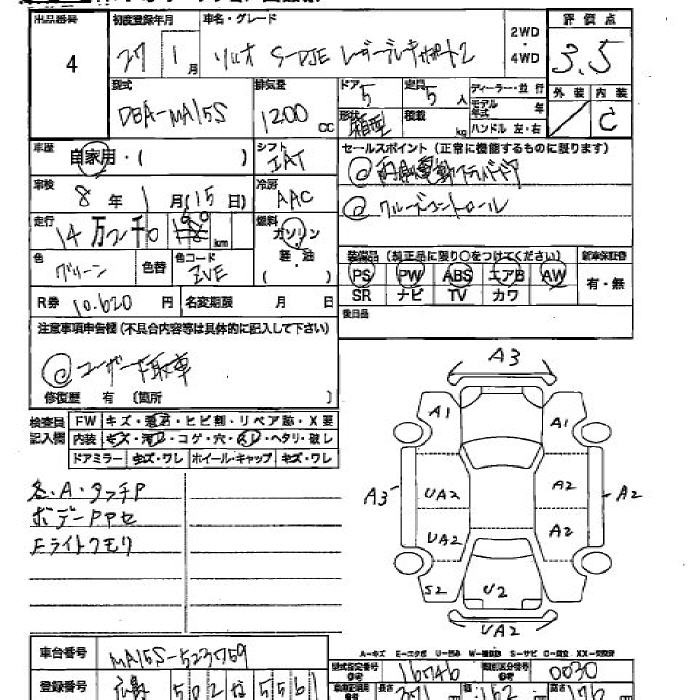 出品番号 初度登録年月 車名・グレード 2WD・4WD 評価点
4 27 1月 ソリオ S-DJE レーダーブレーキサポート2 3.5
型式 排気量 ドア 定員 ディーラー・並行 外装 内装
DBA-MA15S 1200cc 5 5人 モデル年式 年 C
形状 箱型 積載 kg ハンドル 左・右
車歴 自家用・( ) シフト IAT セールスポイント(正常に機能するものに限ります)
車検 8年1月(15日) 冷房 AAC
@クルーズコントロール
走行 14万2千0 km 燃料 ガソリン・軽・油・( )
色 グリーン 色替 色コード ZVE
装備品(純正品に限り○をつけてください) 新車保証書
PS PW ABS エアB AW 有・無
SR ナビ TV カワ
R券 10.620円 名変期限 月 日 後日品
注意事項申告欄(不具合内容等は具体的に記入して下さい)
@ユーザー下取車
修復歴 有 〔箇所 〕
検査員記入欄 FW キズ・飛石・ヒビ割・リペア跡・X要
内装 キズ・汚れ・コゲ・穴・スレ・ヘタリ・破レ
ドアミラー キズ・ワレ ホイール・キャップ キズ・ワレ
各.A・タッチP
ボデーPPセ
Fライトクモリ
A3
A1 A1
A3 UA2 A2 A2
UA2 A2
S2 U2
UA2
A=キズ E=エクボ U=凹み W=補修跡 S=サビ C=腐食 XX=交換済
車台番号 MA15S-523759 型式指定番号 16746 類別区分番号 0030
登録番号 広島 502 な 5561 長さ 371 幅 162 高さ